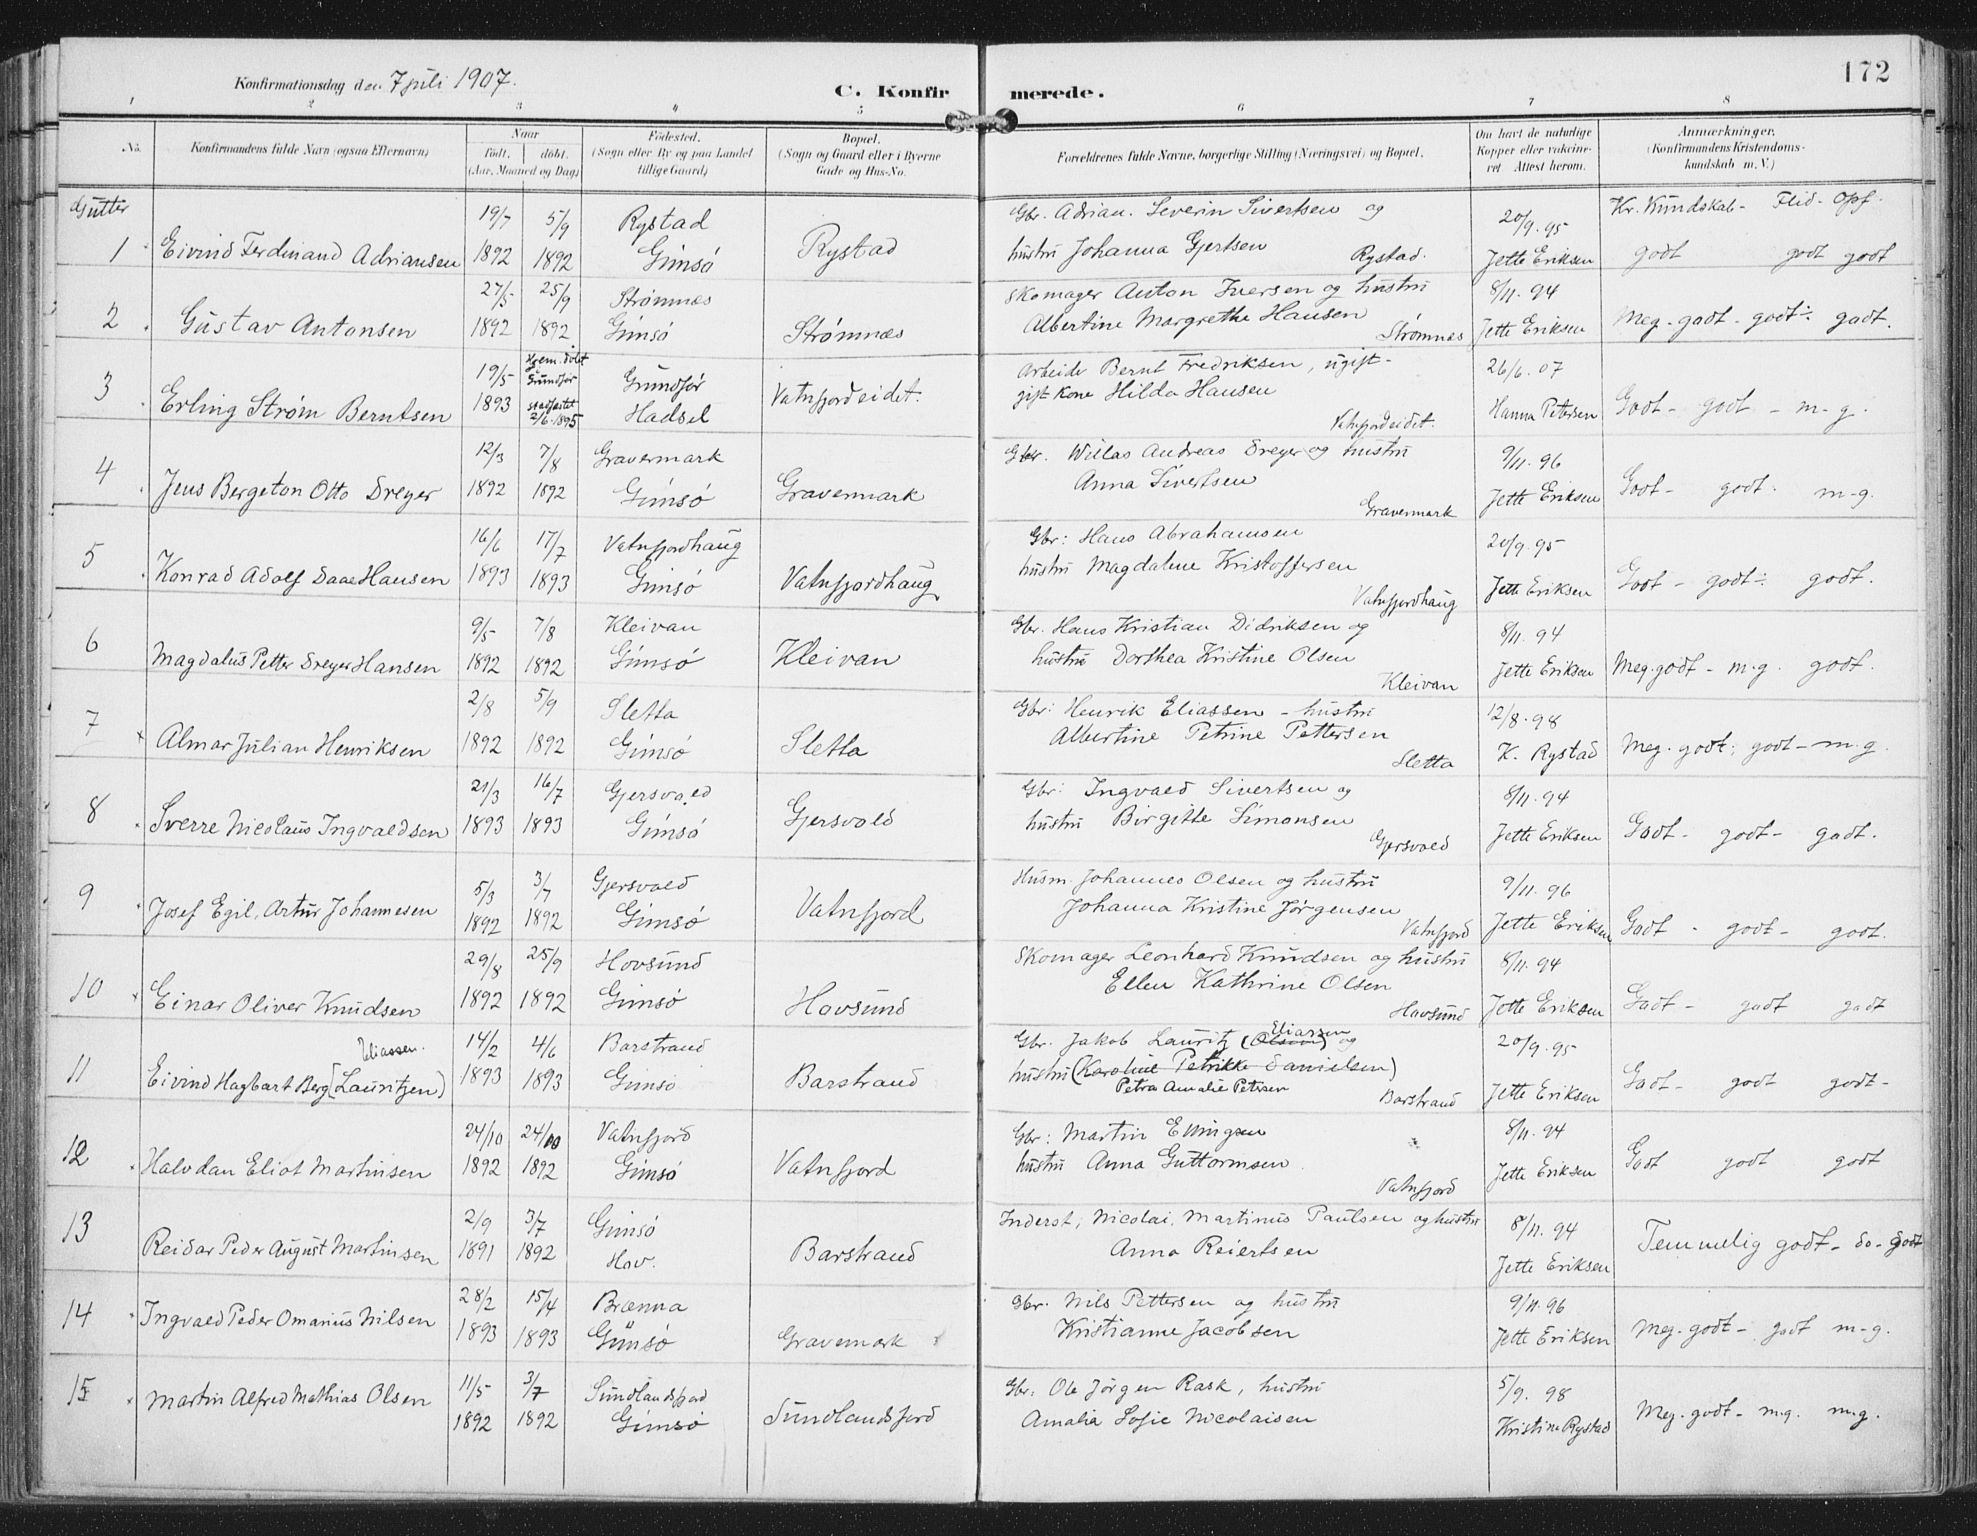 172
Konfirmationsdag den 7 juli 1907.
C. Konfirmerede.
1 2 3 4 5 6 7 8
No.
Konfirmandens fulde Navn (ogsaa Efternavn)
Naar
født. døbt.
(Aar, Maaned og Dag)
Fødested.
(Sogn eller By og paa Landet
tillige Gaard)
Bopæl.
(Sogn og Gaard eller i Byerne
Gade og Hus-No.
Forældrenes fulde Navne, borgerlige Stilling (Næringsvei) og Bopæl.
Om havt de naturlige
Kopper eller vakcine-
ret Attest herom.
Anmærkninger.
(Konfirmandens Kristendoms-
kundskab m. V.)
Gutter
Kr. Kundskab - Flid - Opf.
19/7 5/9 Rystad Gbr. Adrian. Severin Sivertsen og 20/9. 95
1 Eivind Ferdinand Adriansen 1892 1892 Gimsø Rystad hustru Johanna Gjertsen Rystad. Jette Eriksen godt godt godt
27/5 25/9 Strømnæs Skomager Anton Iversen og hustru 8/11. 94
2 Gustav Antonsen 1892 1892 Gimsø Strømnæs Albertine Margrethe Hansen Strømnæs Jette Eriksen Meg. godt - godt - godt.
19/5 Hjem. døbt Grundfør Grundfør Arbeider Bernt Fredriksen, ugift - 26/6. 07
3 Erling Strøm Berntsen 1893 stadfæstet 2/6. 1895 Hadsel Vatnfjordeidet. gift Kone Hilda Hansen Vatnfjordeidet. Hanna Petersen Godt - godt - m-g.
12/3 7/8 Gravermark Gbr. Willas Andreas Dreyer og hustru 9/11. 96
4 Jens Bergeton Otto Dreyer 1892 1892 Gimsø Gravermark Anna Sivertsen Gravermark Jette Eriksen Godt - godt. m-g.
16/6 17/7 Vatnfjordhaug Gbr: Hans Abrahamsen 20/9. 95
5 Konrad Adolf Daae Hansen 1893 1893 Gimsø Vatnfjordhaug hustru Magdalene Kristoffersen Vatnfjordhaug Jette Eriksen Godt - godt - godt.
9/5 7/8 Kleivan Gbr. Hans Kristian Didriksen og 8/11. 94
6 Magdalus Petter Dreyer Hansen 1892 1892 Gimsø Kleivan hustru Dorthea Kristine Olsen Kleivan Jette Eriksen Meg. godt - m.g. godt.
2/8 5/9 Sletta Gbr: Henrik Eliassen - hustru 12/8. 98
7 Almar Julian Henriksen 1892 1892 Gimsø Sletta Albertine Petrine Pettersen Sletta K. Rystad Meg. godt; godt - m-g.
21/3 16/7 Gjersvold Gbr: Ingvald Sivertsen og 8/11. 94
8 Sverre Nicolaus Ingvaldsen 1893 1893 Gimsø Gjersvold hustru Birgitte Simonsen Gjersvold Jette Eriksen Godt - godt - godt.
5/3 3/7 Gjersvold Husm. Johannes Olsen og hustru 9/11. 96
9 Josef Egil. Artur Johannesen 1892 1892 Gimsø Vatnfjord Johanna Kristine Jørgensen Vatnfjord Jette Eriksen Godt - godt - godt.
29/8 25/9 Hovsund Skomager Leonhard Knudsen og hustru 8/11. 94
10 Einar Oliver Knudsen 1892 1892 Gimsø Hovsund Ellen Kathrine Olsen Hovsund Jette Eriksen Godt - godt godt
Eliassen. 14/2 4/6 Barstrand Gbr. Jakob Lauritz (Olsson) Eliassen og 20/9. 95
11 Eivind Hagbart Berg [Lauritzen] 1893 1893 Gimsø Barstrand hustru (Karoline Petrikke Danielsen) Petra Amalie Petersen Barstrand Jette Eriksen Godt - godt godt -
24/10 24/10 Vatnfjord Gbr: Martin Ellingsen 8/11. 94
12 Halvdan Eliot Martinsen 1892 1892 Gimsø Vatnfjord hustru Anna Guttormsen Vatnfjord Jette Eriksen Godt godt godt
2/9 3/7 Gimsø Inderst, Nicolai. Martinus Paulsen og hustru 8/11. 94
13 Reidar Peder August Martinsen 1891 1892 Hov. Barstrand Anna Reiertsen Jette Eriksen Temmelig godt - do - godt
28/2 15/4 Brænna Gbr. Nils Pettersen og hustru 9/11. 96
14 Ingvald Peder Omarius Nilsen 1893 1893 Gimsø Gravemark Kristianne Jacobsen Jette Eriksen Meg. godt - godt m-g.
11/5 3/7 Sundlandsfjord Gbr: Ole Jörgen Rask, hustru 5/9. 98
15 Martin Alfred Mathias Olsen 1892 1892 Gimsø Sundlandsfjord Amalia Sofie Nicolaisen Kristine Rystad Meg. godt - m.g. m-g.